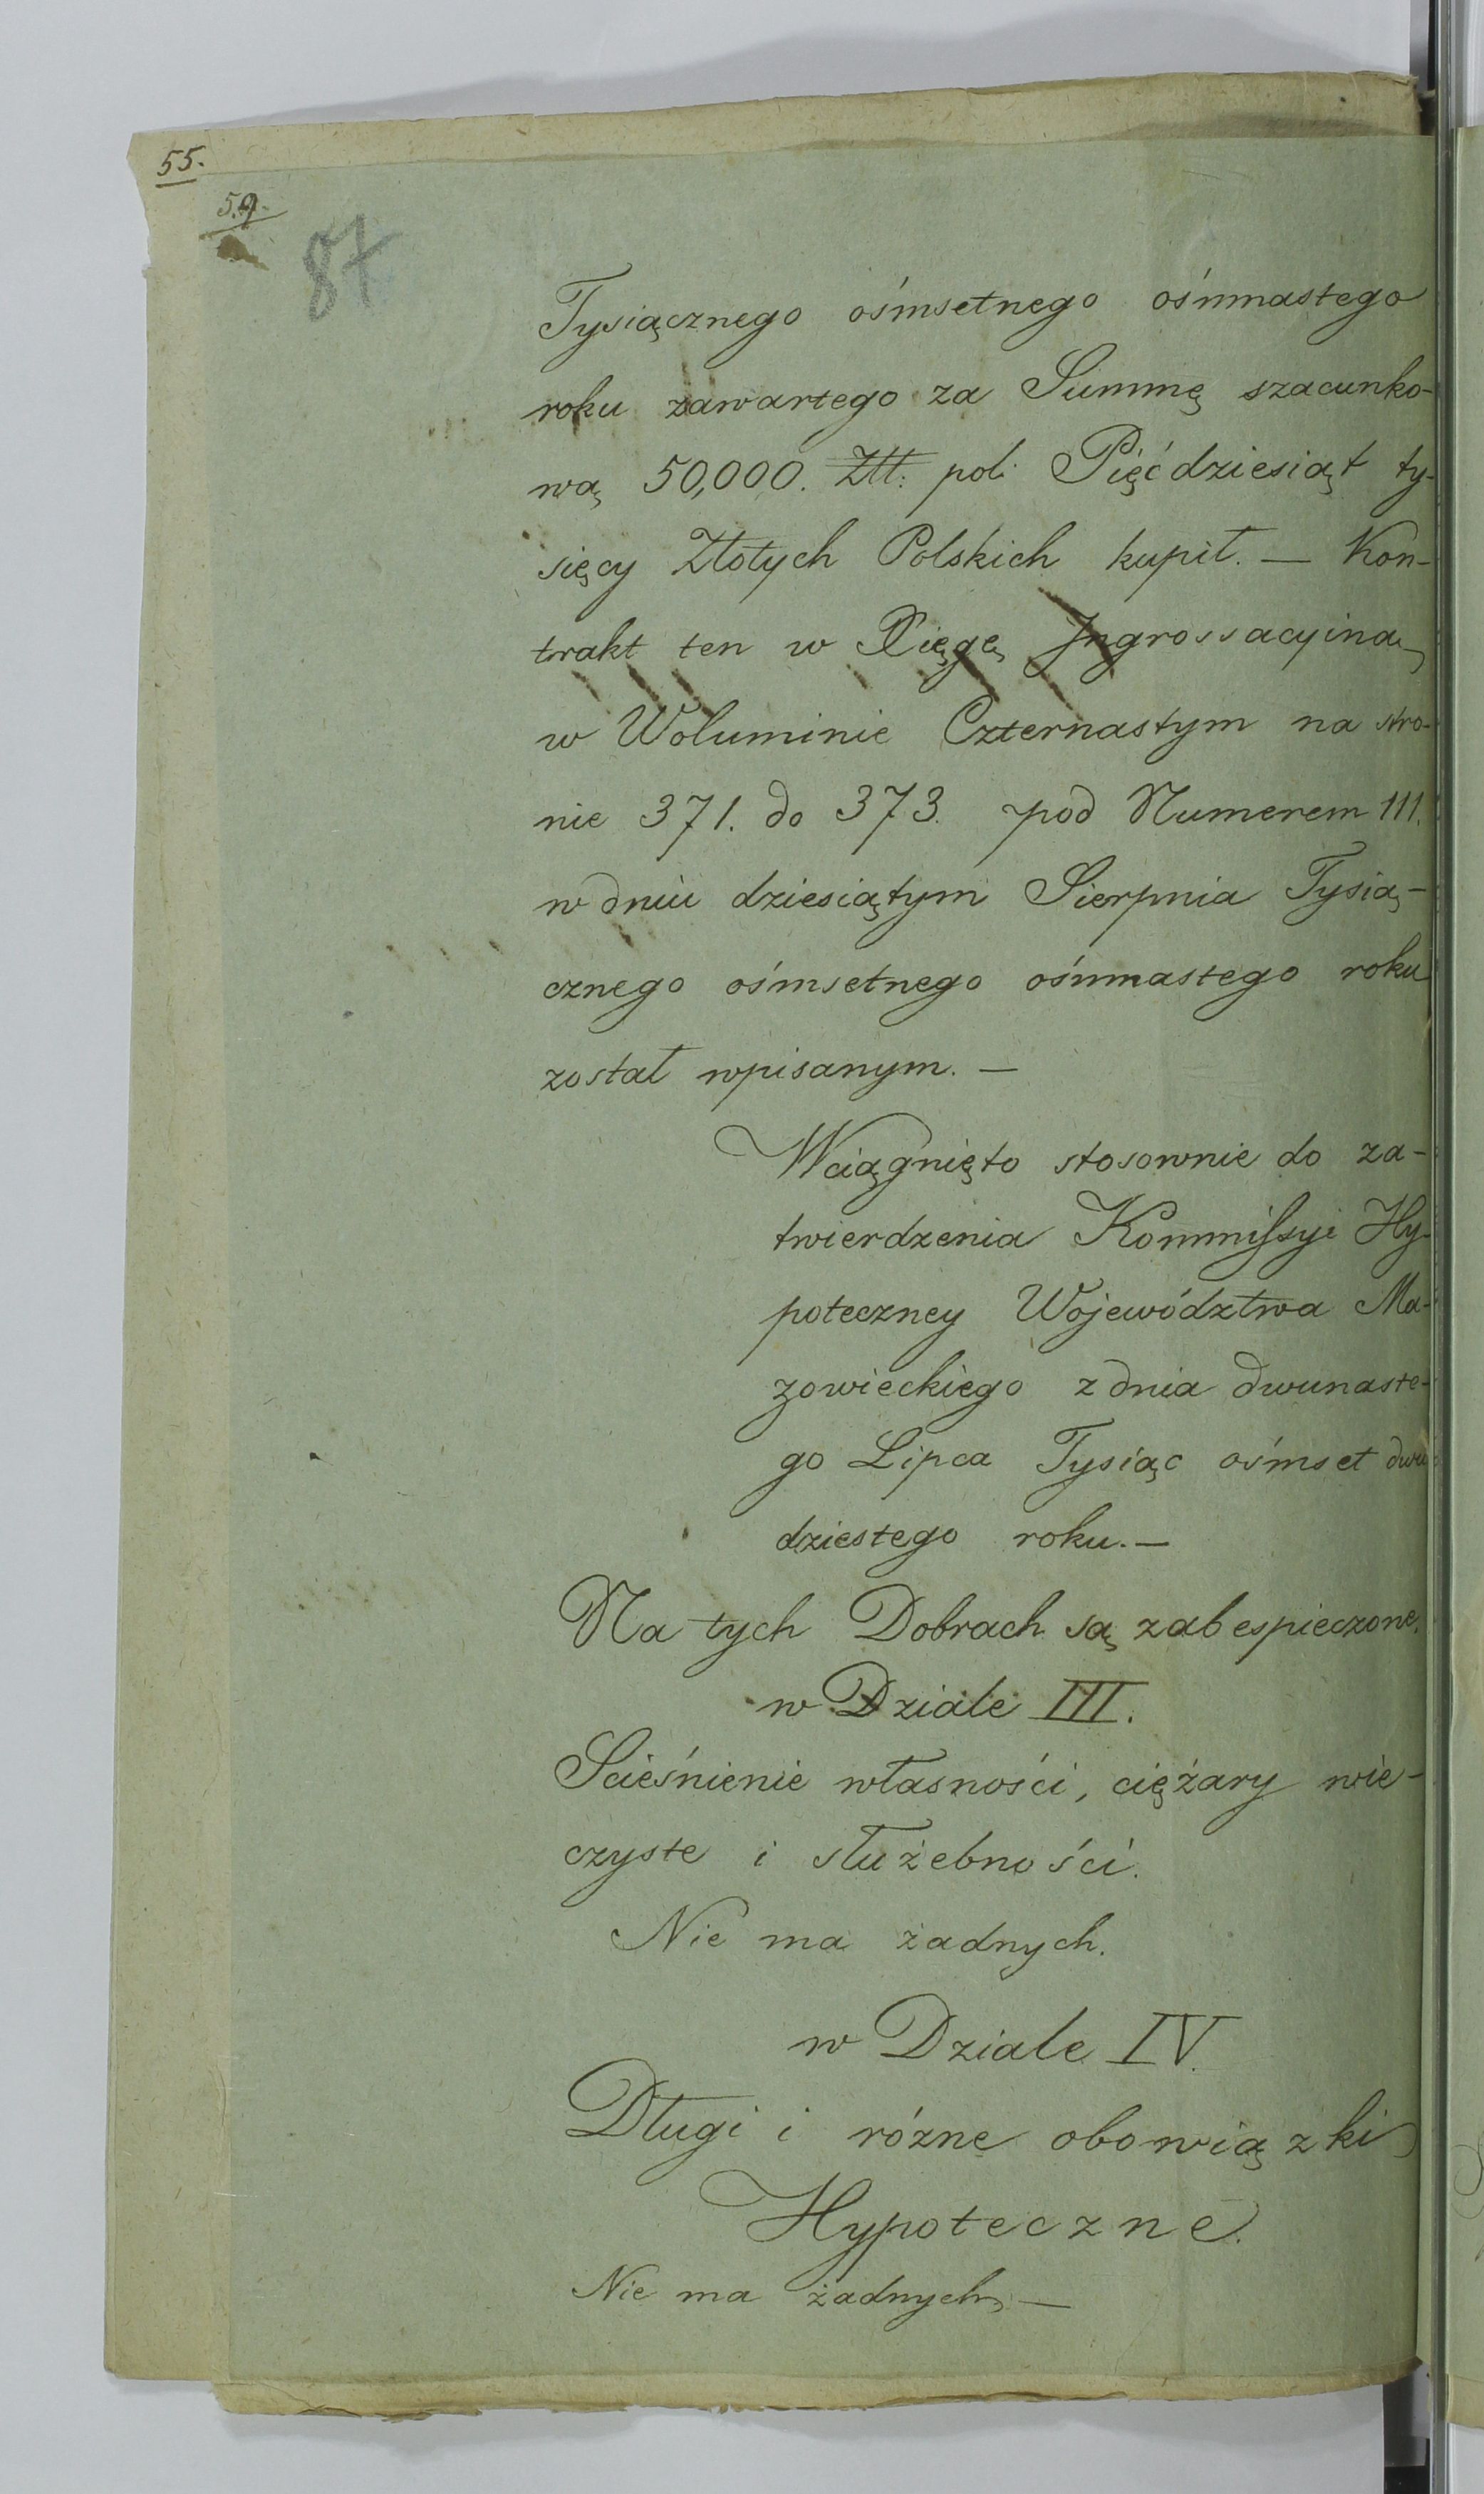 55.
59.
87
Tysiącznego ośmsetnego ośmnastego
roku zawartego za Summę szacunko-
wą 50,000. Złł: pol: Pięćdziesiąt ty-
sięcy Złotych Polskich kupił. — Kon-
trakt ten w Xięgę Jngrossacyiną
w Woluminie Czternastym na stro-
nie 371. do 373. pod Numerem 111.
w dniu dziesiątym Sierpnia Tysią-
cznego ośmsetnego ośmnastego roku
został wpisanym. —
Wciągnięto stosownie do za-
twierdzenia Kommissyi Hy-
poteczney Województwa Ma-
zowieckiego z dnia dwunaste-
go Lipca Tysiąc ośmset dwu
dziestego roku. —
Na tych Dobrach są zabespieczone.
w Dziale III.
Scieśnienie własności, ciężary wie-
czyste i służebności.
Nie ma żadnych.
w Dziale IV.
Długi i różne obowiązki
Hypoteczne.
Nie ma żadnych —